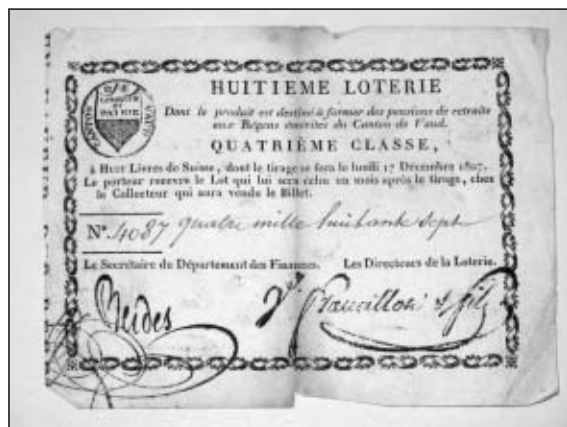 HUITIEME LOTERIE
LIBERTÉ
ET
PATRIE
CANTON DE VAUD
Dont le produit est destiné à former des pensions de retraite
aux Régens émérites du Canton de Vaud.
QUATRIÈME CLASSE,
à Huit Livres de Suisse, dont le tirage se fera le lundi 17 Décembre 1807.
Le porteur recevra le Lot qui lui sera échu un mois après le tirage, chez
le Collecteur qui aura vendu le Billet.
N.° 4087 quatre mille huitante sept
Le Secrétaire du Département des Finances. Les Directeurs de la Loterie.